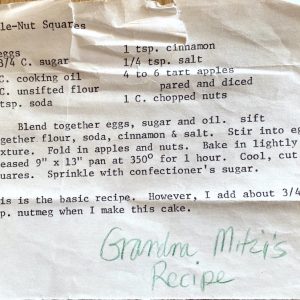 le-Nut Squares
eggs
3/4 C. sugar
C. cooking oil
C. unsifted flour
tsp. soda
1 tsp. cinnamon
1/4 tsp. salt
4 to 6 tart apples
pared and diced
1 C. chopped nuts
Blend together eggs, sugar and oil. sift
gether flour, soda, cinnamon & salt. Stir into eg
xture. Fold in apples and nuts. Bake in lightly
eased 9" x 13" pan at 350° for 1 hour. Cool, cut
uares. Sprinkle with confectioner's sugar.
is is the basic recipe. However, I add about 3/4
p. nutmeg when I make this cake.
Grandma Mitzi's
Recipe